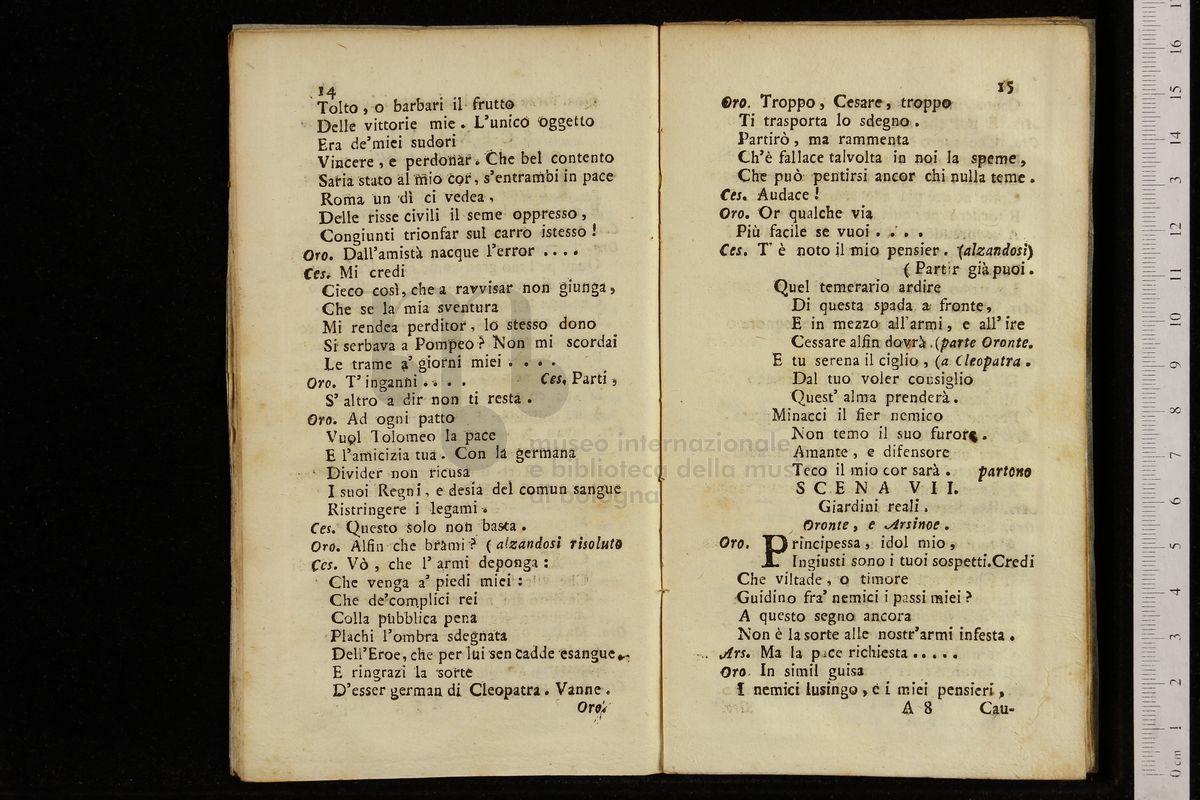 14
Tolto, o barbari il frutto
Delle vittorie mie. L'unico oggetto
Era de'miei sudori
Vincere, e perdonar. Che bel contento
Saria stato al mio cor, s'entrambi in pace
Roma un dì ci vedea,
Delle risse civili il seme oppresso,
Congiunti trionfar sul carro istesso!
Oro. Dall'amistà nacque l'error ....
Ces. Mi credi
Cieco così, che a ravvisar non giunga,
Che se la mia sventura
Mi rendea perditor, lo stesso dono
Si serbava a Pompeo? Non mi scordai
Le trame a' giorni miei ....
Oro. T'inganni .... Ces. Parti,
S'altro a dir non ti resta.
Oro. Ad ogni patto
Vuol Tolomeo la pace
E l'amicizia tua. Con la germana
Divider non ricusa
I suoi Regni, e desia del comun sangue
Ristringere i legami.
Ces. Questo solo non basta.
Oro. Alfin che brami? (alzandosi risoluto
Ces. Vò, che l'armi deponga:
Che venga a' piedi miei:
Che de'complici rei
Colla pubblica pena
Plachi l'ombra sdegnata
Dell'Eroe, che per lui sen cadde esangue.
E ringrazi la sorte
D'esser german di Cleopatra. Vanne.
Oro.
15
Oro. Troppo, Cesare, troppo
Ti trasporta lo sdegno.
Partirò, ma rammenta
Ch'è fallace talvolta in noi la speme,
Che può pentirsi ancor chi nulla teme.
Ces. Audace!
Oro. Or qualche via
Più facile se vuoi ....
Ces. T'è noto il mio pensier. (alzandosi)
( Partir già puoi.
Quel temerario ardire
Di questa spada a fronte,
E in mezzo all'armi, e all'ire
Cessare alfin dovrà. (parte Oronte.
E tu serena il ciglio, (a Cleopatra.
Dal tuo voler consiglio
Quest'alma prenderà.
Minacci il fier nemico
Non temo il suo furore.
Amante, e difensore
Teco il mio cor sarà. partono
SCENA VII.
Giardini reali.
Oronte, e Arsinoe.
Oro. Principessa, idol mio,
Ingiusti sono i tuoi sospetti. Credi
Che viltade, o timore
Guidino fra' nemici i passi miei?
A questo segno ancora
Non è la sorte alle nostr'armi infesta.
Ars. Ma la pace richiesta .....
Oro. In simil guisa
I nemici lusingo, e i miei pensieri,
A 8 Cau-
museo internazionale
e biblioteca della musica
di bologna
0 cm 1 2 3 4 5 6 7 8 9 10 11 12 13 14 15 16 17